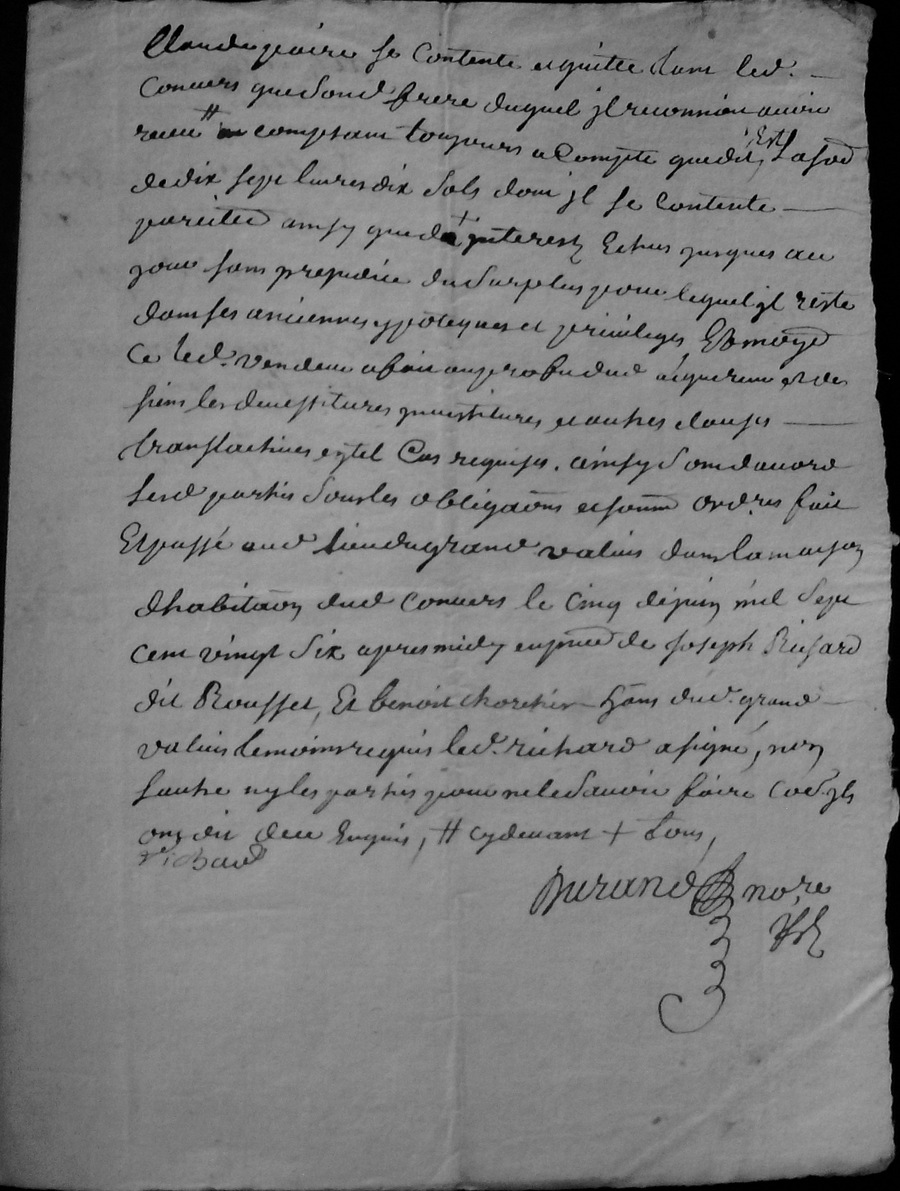 Claude paire se contente et quitte tant led.
Convers que sond frere duquel jl reconnoit avoir
receu # comptant toujours a Compte que dit, Est, La so͠e
de dix sept livres dix sols dont jl se contente
pareille͠ ainsy que de + jnterest Echus jusques au
jour sans prejudice du surplus pour lequel jl reste
dans ses anciennes ypoteques et privileges Et moye͠
Ce led. vendeur a fait au proffit dud aquereur et des
siens les devestitures jnvestitures et autres clauses
translatives en tel Cas requises. ainsy sont dacord
lesd partis sous les obliga͠ons et soum͠ ord.res fait
Et passé aud lieu du grand valins dans la maison
dhabita͠on dud convers le cinq de juin mil sept
cent vingt six apres midy en pnce de Joseph Richard
dit Rousset, Et benoit hans dud. grand
valins temoins requis led. richard a signé, non
lautre ny les partis pour ne le savoir faire co͠e jls
ont dit deue Enquis, # cydevant + tous,
richard
Durand no.re